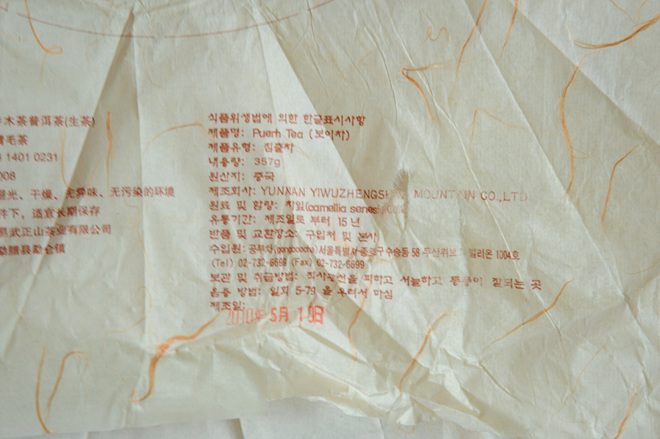 木茶普洱茶(生茶)
毛茶
1401 0231
008
光、干燥、无异味、无污染的环境
件下，适宜长期保存
易武正山茶业有限公司
勐腊县勐仑镇
식품위생법에 의한 한글표시사항
제품명: Puerh Tea (보이차)
제품유형: 침출차
내용량: 357g
원산지: 중국
제조회사: YUNNAN YIWUZHENGSHAN MOUNTAIN CO.,LTD
원료 및 함량: 찻잎(camellia senes
유통기간: 제조일로 부터 15년
반품 및 교환장소: 구입처 및 본사
수입원: 공부차(gongboocha)서울특별시 종로구수송동 58 두산위브 밀리온 1004호
(Tel) 02-732-6699 (Fax) 02-732-6899
보관 및 취급방법: 직사광선을 피하고 서늘하고 통풍이 잘되는 곳
음용 방법: 일회 5-7g 을 우려서 마심
제조일:
2010年 5月 1日